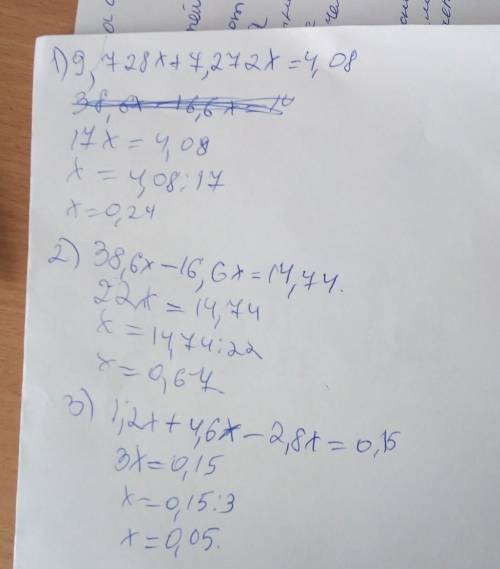 1) 9,728x+7,272x=4,08
17x=4,08
x=4,08:17
x=0,24
2) 38,6x-16,6x=14,74.
22x=14,74
x=14,74:22
x=0,67
3) 1,2x+4,6x-2,8x=0,15
3x=0,15
x=0,15:3
x=0,05.